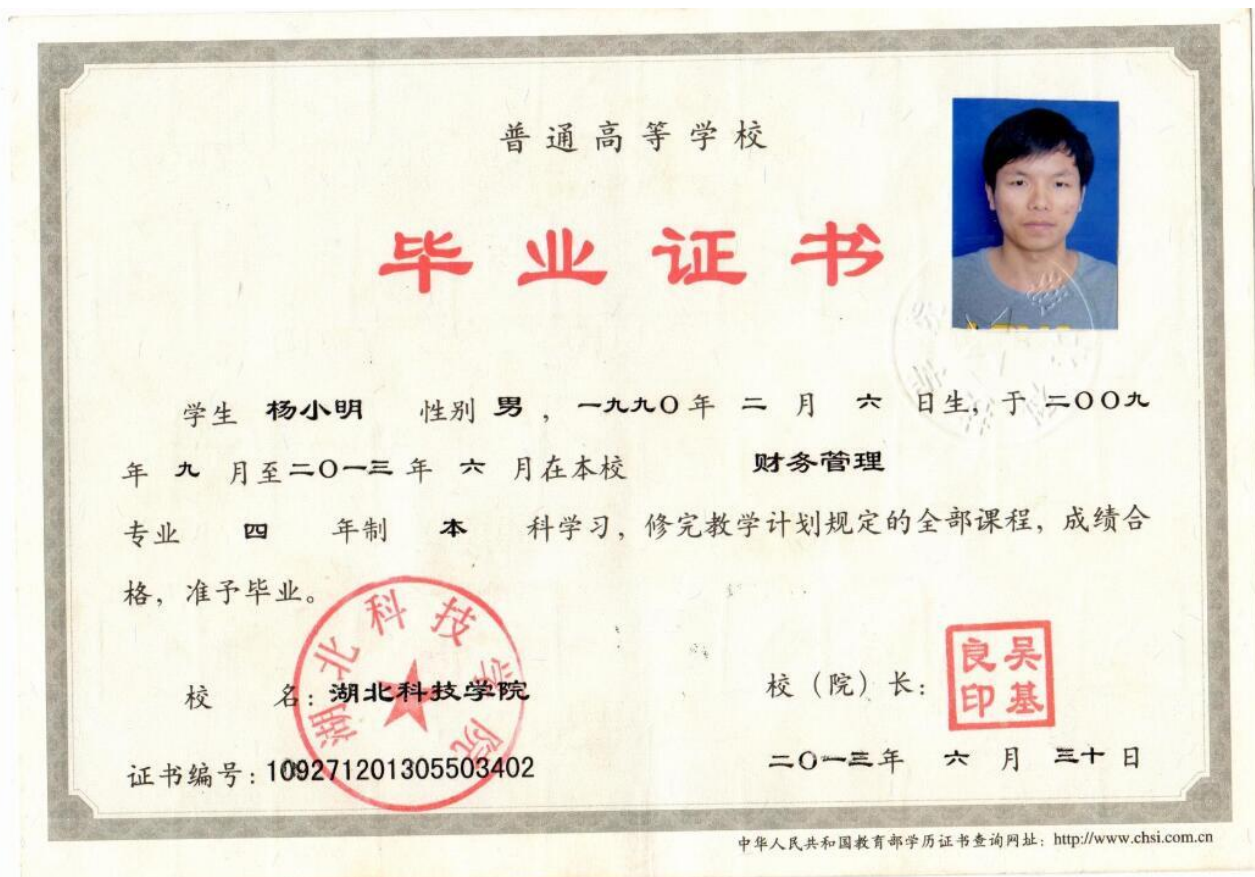 普通高等学校
毕业证书
学生 杨小明 性别 男，一九九〇年 二 月 六 日生，于 二〇〇九
年 九 月至二〇一三 年 六 月在本校 财务管理
专业 四 年制 本 科学习，修完教学计划规定的全部课程，成绩合
格，准予毕业。
湖北科技学院
校 名：湖北科技学院
校（院）长：
吴基良印
证书编号：109271201305503402
二〇一三年 六 月 三十 日
中华人民共和国教育部学历证书查询网址：http://www.chsi.com.cn